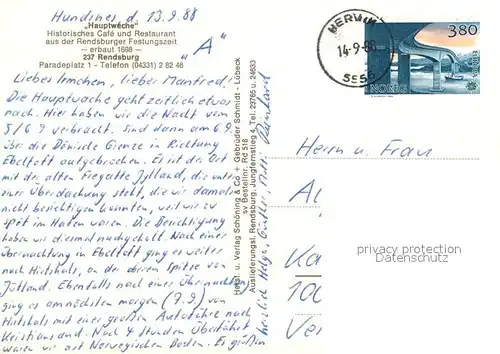 Hundsnes, d. 13.9.88
„Hauptwache"
Historisches Café und Restaurant
aus der Rendsburger Festungszeit
– erbaut 1698 –
237 Rendsburg
Paradeplatz 1 - Telefon (04331) 2 82 46
"A"
Liebes Irmchen, lieber Manfred!
Die Hauptwache geht zeitlich etwas
nach. Hier haben wir die Nacht vom
5/6.9 verbracht. Sind dann am 6.9
über die Dänische Grenze in Richtung
Ebeltoft aufgebrochen. Es ist der Ort
mit der alten Fregatte Jylland, die unter
einer Überdachung steht, die wir damals
nicht besichtigen konnten, weil wir zu
spät im Hafen waren. Die Besichtigung
haben wir diesmal nachgeholt. Nach einer
Übernachtung in Ebeltoft ging es weiter
nach Hirtshals, an der oberen Spitze von
Jütland. Ebenfalls nach einer Übernachtung
ging es am nächsten morgen (7.9) von
Hirtshals mit einer großen Autofähre nach
Kristiansand. Nach 4 Stunden Überfahrt
waren wir auf Norwegischen Boden. Es grüßen
herzlich Helga, Günther, Reinhard
Hersg. u. Verlag Schöning & Co + Gebrüder Schmidt - Lübeck
sv Bestellnr. Rd 518
Auslieferungsl. Rendsburg, Jungfernstieg 4, Tel. 23765 u. 24633
14-9-88
5556
3.80
NORGE
Herrn u. Frau
Al
Ka
100
Ver
privacy protection
Datenschutz